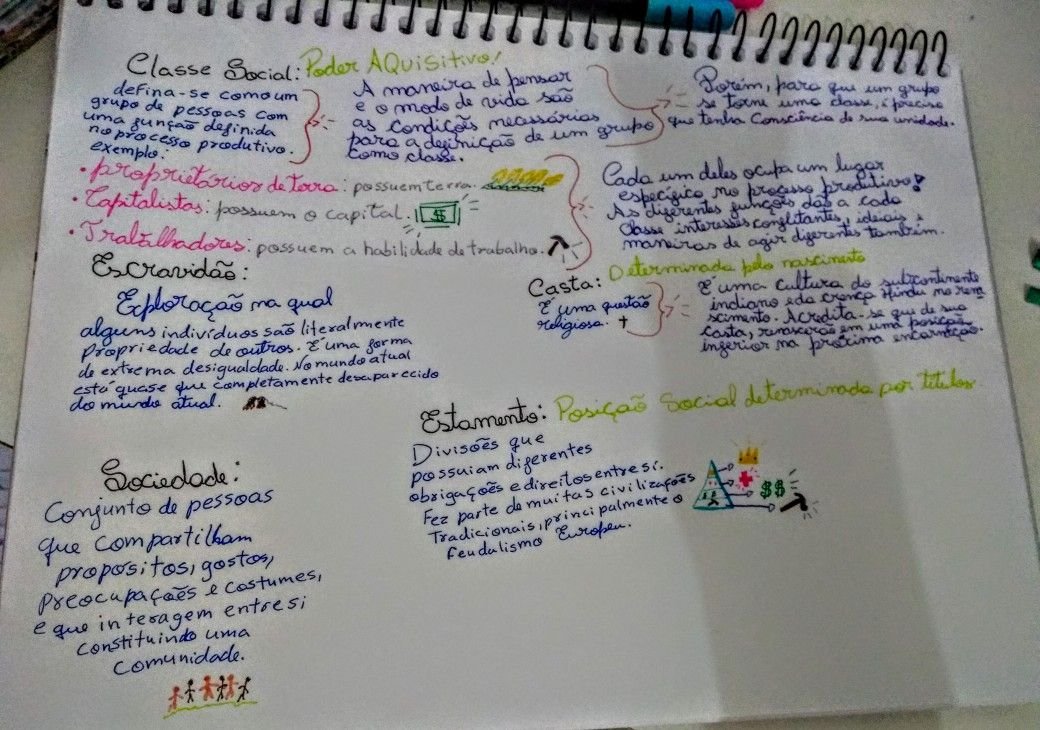 Classe Social: Poder AQuisitivo!
defina-se como um
grupo de pessoas com
uma função definida
no processo produtivo.
exemplo:
A maneira de pensar
e o modo de vida são
as condições necessárias
para a definição de um grupo
como classe.
Porém, para que um grupo
se torne uma classe, é preciso
que tenha Consciência de sua unidade.
• proprietários de terra: possuem terra.
• Capitalistas: possuem o capital. $$
• Trabalhadores: possuem a habilidade de trabalho.
Cada um deles ocupa um lugar
específico no processo produtivo!
As diferentes funções dão a cada
classe interesses conflitantes, ideais e
maneiras de agir diferentes também.
Escravidão:
Exploração na qual
alguns indivíduos são literalmente
propriedade de outros. É uma forma
de extrema desigualdade. No mundo atual
está quase que completamente desaparecido
do mundo atual.
Casta: Determinada pelo nascimento
É uma questão
religiosa.
É uma cultura do subcontinente
indiano e da crença Hindu no rena
scimento. Acredita-se que de sua
casta, renascerão em uma posição
inferior na próxima encarnação.
Estamento: Posição Social determinada por títulos.
Divisões que
possuiam diferentes
obrigações e direitos entre si.
Fez parte de muitas civilizações
Tradicionais, principalmente o
feudalismo Europeu.
$$
Sociedade:
Conjunto de pessoas
que compartilham
propósitos, gostos,
preocupações e costumes,
e que interagem entre si
constituindo uma
comunidade.